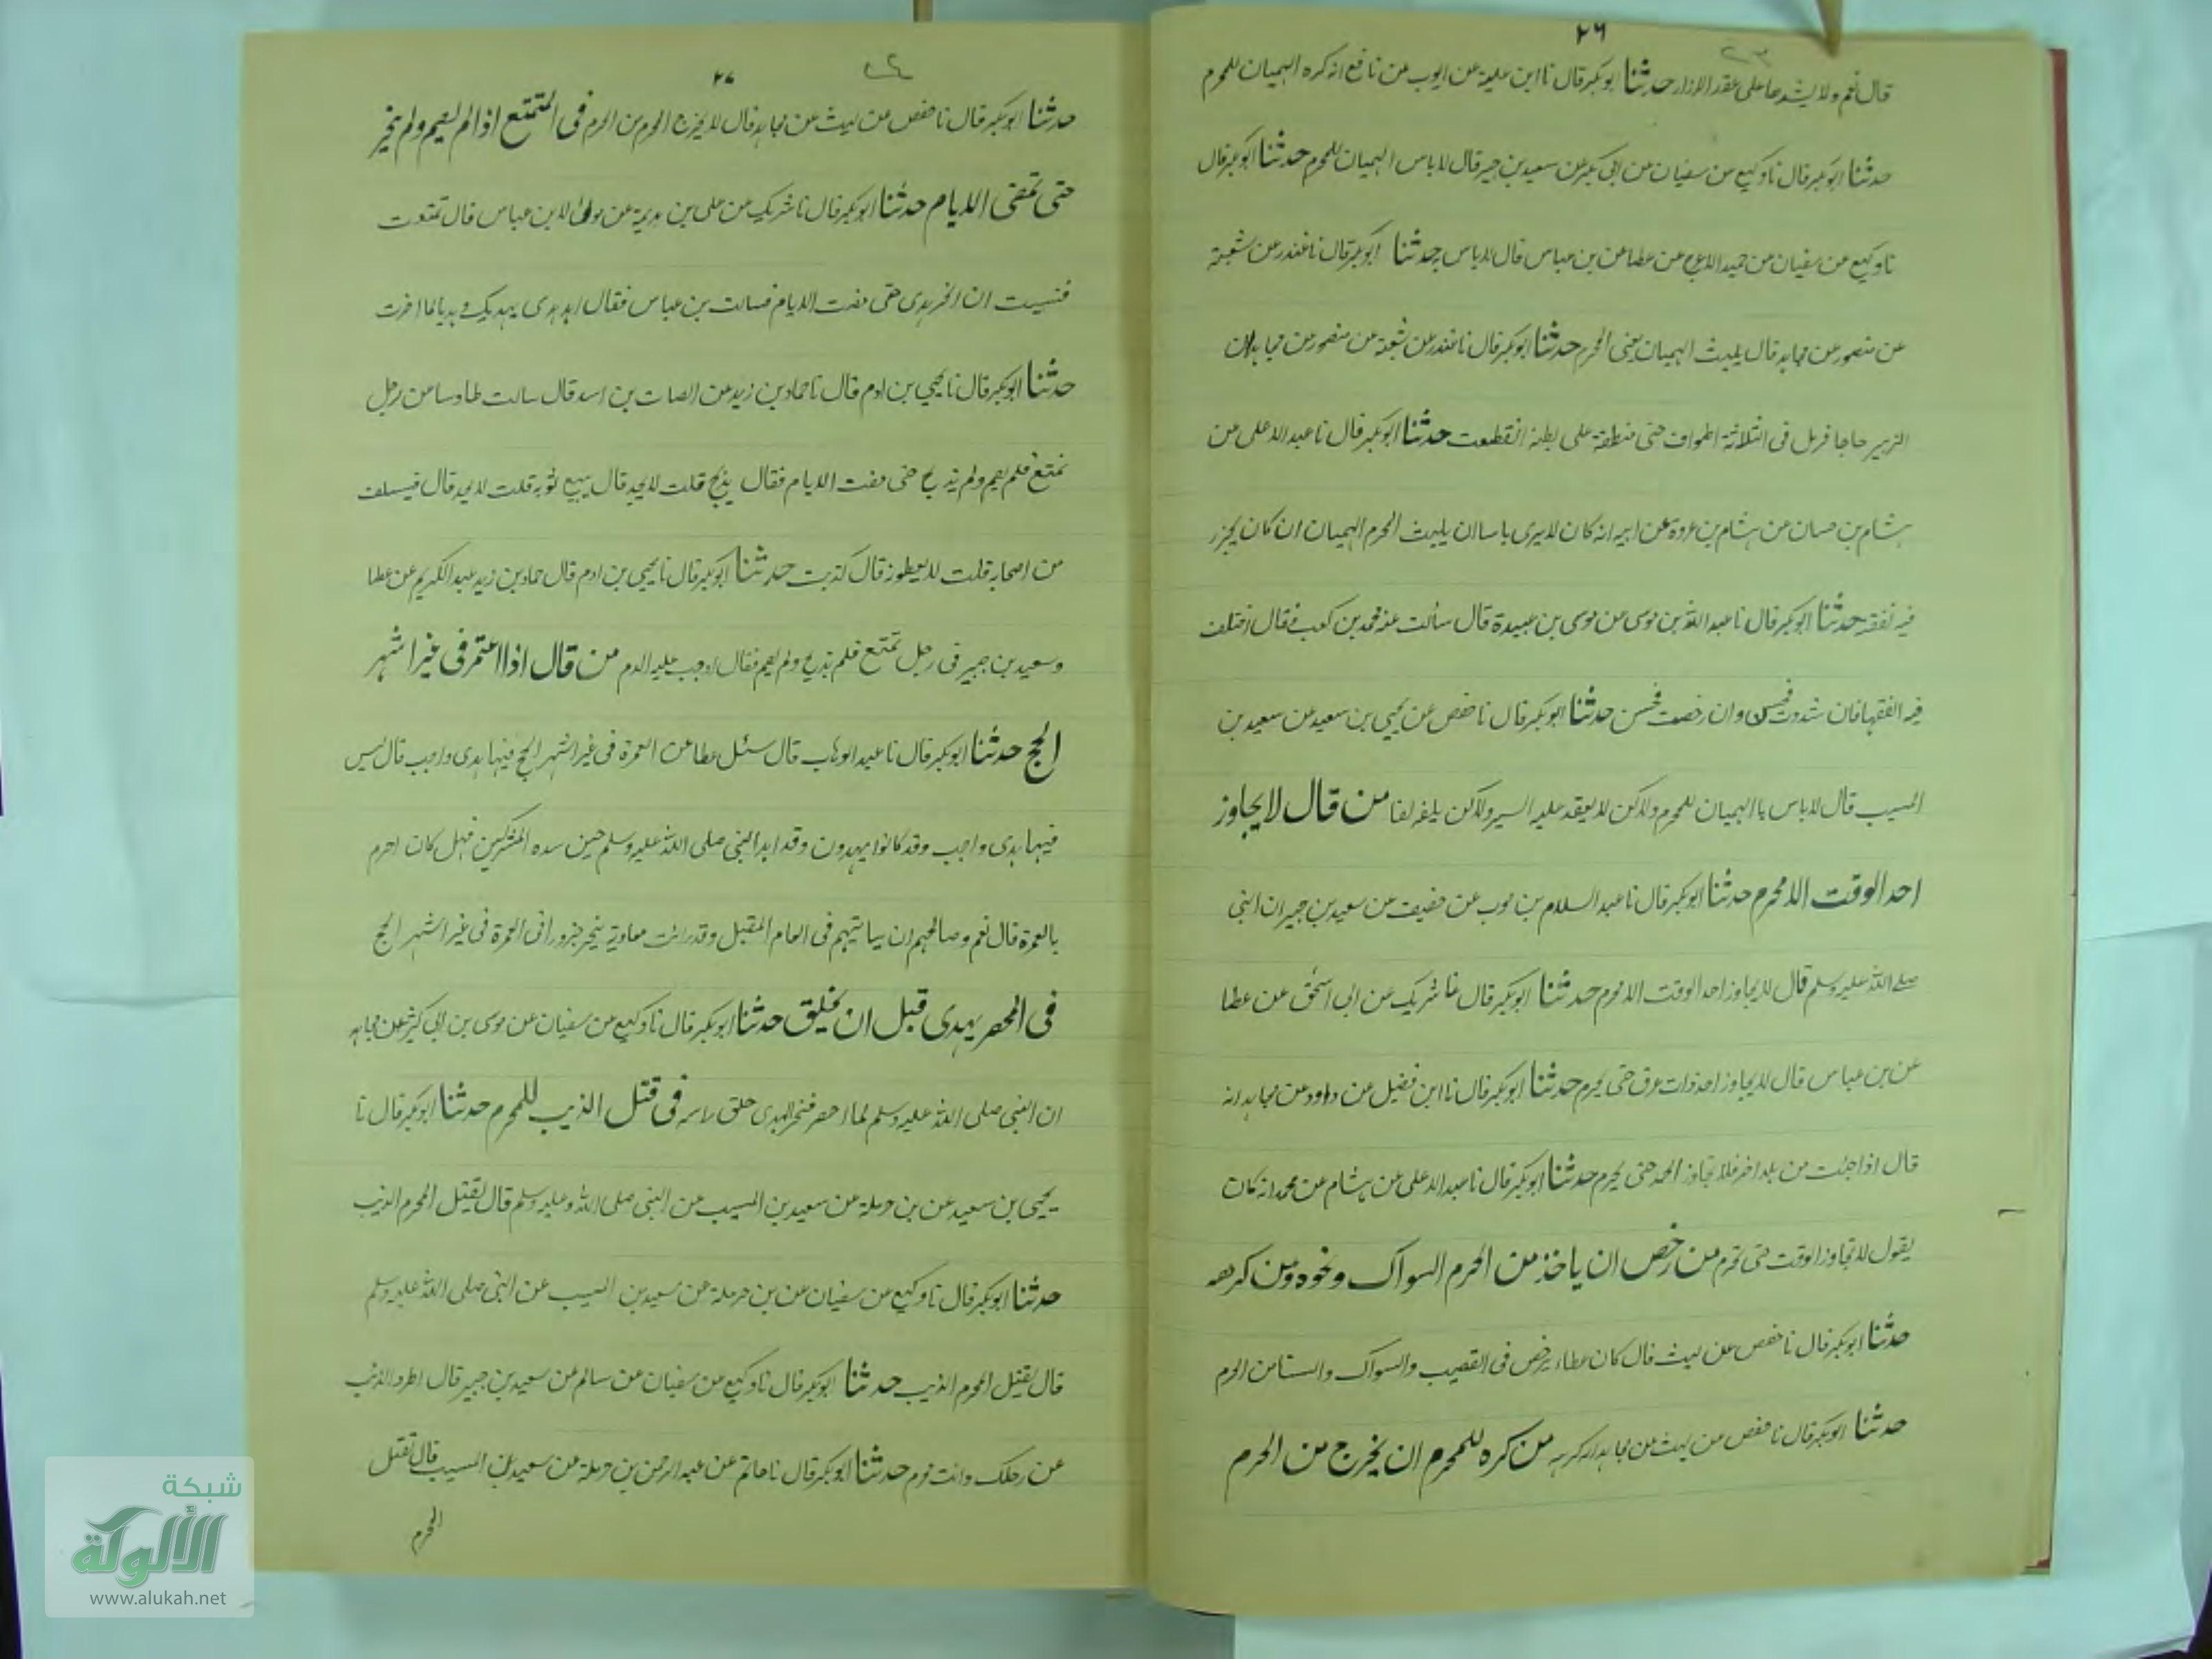 ٢٦
قال نعم ولا يشدها على عقد الازار حدثنا ابو بكر قال نا ابن علية عن ايوب عن نافع انه كره الهميان للمحرم
حدثنا ابو بكر قال نا وكيع عن سفيان عن ابى بكر عن سعيد بن جبير قال لا باس الهميان للمحرم حدثنا ابو بكر قال
نا وكيع عن سفيان عن حميد الاعرج عن عطا عن بن عباس قال لا باس به حدثنا ابو بكر قال نا غندر عن شعبة
عن منصور عن مجاهد قال يلبث الهميان يعنى المحرم حدثنا ابو بكر قال نا غندر عن شعبة عن منصور عن مجاهد ان
الزبير حاجا فرمل فى الثلاثة اطواف حتى منطقة على بطنه انقطعت حدثنا ابو بكر قال نا عبد الاعلى عن
هشام بن حسان عن هشام بن عروة عن ابيه انه كان لا يرى باسا ان يلبث المحرم الهميان ان كان يحرز
فيه نفقته حدثنا ابو بكر قال نا عبد الله بن موسى عن موسى بن عبيدة قال سألت عنه محمد بن كعب فقال اختلف
فيه الفقها فان شددت فحسن وان رخصت فحسن حدثنا ابو بكر قال نا حفص عن يحيى بن سعيد عن سعيد بن
المسيب قال لا باس بالهميان للمحرم ولكن لا يعقد عليه السير ولكن يلفه لفا من قال لا يجاوز
احد الوقت الا محرم حدثنا ابو بكر قال نا عبد السلام بن حرب عن خصيف عن سعيد بن جبير ان النبى
صلى الله عليه وسلم قال لا يجاوز احد الوقت الا محرم حدثنا ابو بكر قال نا شريك عن ابى اسحق عن عطا
عن بن عباس قال لا يجاوز احد ذات عرق حتى يحرم حدثنا ابو بكر قال نا ابن فضيل عن داود عن مجاهد انه
قال اذا جئت من بلد اخر فلا تجاوز الحد حتى تحرم حدثنا ابو بكر قال نا عبد الاعلى عن هشام عن محمد انه كان
يقول لا تجاوز الوقت حتى تحرم من رخص ان ياخذ من الحرم السواك ونحوه ومن كرهه
حدثنا ابو بكر قال نا حفص عن ليث قال كان عطاء يرخص فى القصيب والسواك والسنا من الحرم
حدثنا ابو بكر قال نا حفص عن ليث عن مجاهد انه كرهه من كره للمحرم ان يخرج من الحرم
٢٧
حدثنا ابو بكر قال نا حفص عن ليث عن مجاهد قال لا يخرج المحرم من الحرم فى المتمتع اذا لم يصم ولم ينحر
حتى تمضى الايام حدثنا ابو بكر قال نا شريك عن على بن بذيمة عن مولى لابن عباس قال تمتعت
فنسيت ان انحر هدى حتى مضت الايام فسالت بن عباس فقال اهد هدى لهديك وهديا لما اخرت
حدثنا ابو بكر قال نا يحيى بن ادم قال نا حماد بن زيد عن الصات بن اسد قال سالت طاوسا عن رجل
تمتع فلم يصم ولم يذبح حتى مضت الايام فقال يذبح قلت لا يجد قال يبيع ثوبه قلت لا يجد قال فيسلف
من اصحابه قلت لا يعطونه قال كذبت حدثنا ابو بكر قال نا يحيى بن ادم قال حماد بن زيد عبد الكريم عن عطا
وسعيد بن جبير فى رجل تمتع فلم يذبح ولم يصم فقال اوجب عليه الدم من قال اذا اعتمر فى غير اشهر
الحج حدثنا ابو بكر قال نا عبد الوهاب قال سئل عطا عن العمرة فى غير اشهر الحج فيها هدى واجب قال ليس
فيها هدى واجب وقد كانوا يهدون وقد اهدا النبى صلى الله عليه وسلم حين سده المشركين فهل كان احرم
بالعمرة قال نعم وصالحهم ان سياتيهم فى العام المقبل وقد رايت معاوية ينحر جزورا فى العمرة فى غير اشهر الحج
فى المحصر يهدى قبل ان يحلق حدثنا ابو بكر قال نا وكيع عن سفيان عن موسى بن ابى كثير عن مجاهد
ان النبى صلى الله عليه وسلم لما احصر فنحر الهدى حلق راسه فى قتل الذيب للمحرم حدثنا ابو بكر قال نا
يحيى بن سعيد عن بن حرملة عن سعيد بن المسيب عن النبى صلى الله وعليه وسلم قال يقتل المحرم الذيب
حدثنا ابو بكر قال نا وكيع عن سفيان عن بن حرملة عن سعيد بن المسيب عن النبى صلى الله عليه وسلم
قال يقتل المحرم الذيب حدثنا ابو بكر قال نا وكيع عن سفيان عن سالم عن سعيد بن جبير قال اطرد الذيب
عن رحلك وانت محرم حدثنا ابو بكر قال نا حاتم عن عبد الرحمن بن حرملة عن سعيد بن المسيب قال يقتل
المحرم
شبكة
الألوكة
www.alukah.net